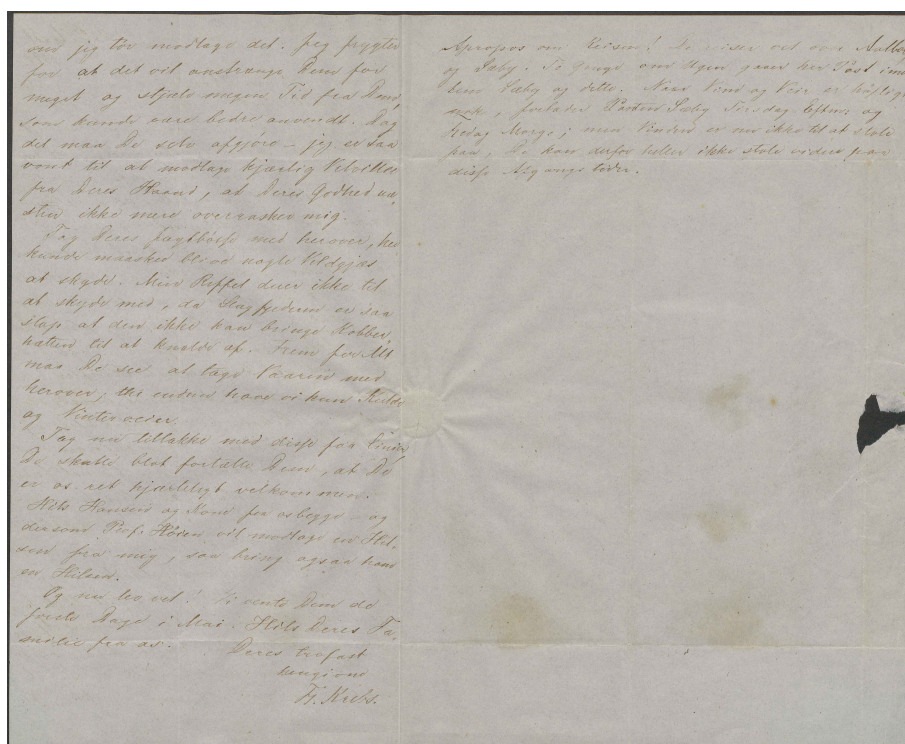 om jeg tör modtage det. Jeg frygter
for at det vil anstrænge Dem for
meget og stjæle megen Tid fra Dem,
som kunde være bedre anvendt. Dog
det maa De selv afgjöre – jeg er saa
vant til at modtage kjærlig Velvillie
fra Deres Haand, at Deres Godhed næ-
sten ikke mere overrasker mig.
Tag Deres Jagtbösse med herover, her
kunde maaskee blive nogle Vildgjæs
at skyde. Min Riffel duer ikke til
at skyde med, da Slagfjederen er saa
slap at den ikke kan bringe Kobber,
hætten til at knalde af. Frem for Alt
maa De see at tage Vaaren med
herover, thi endnu have vi kun Kulde
og Vinterveier.
Tag nu tiltakke med disse faa Linier
De skulle blot fortælle Dem, at De
er os ret hjerteligt velkommen.
Hils Hansens og Kone fra os begge – og
dersom Prof. Höyen vil modtage en Hil-
sen fra mig, saa bring ogsaa ham
en Hilsen.
Og nu lev vel! Vi vente Dem de
förste Dage i Mai. Hils Deres Fa-
milie fra os.
Deres trofast
hengivne
F. Krebs.
Apropos om Reisen! De reiser vel over Aalborg
og Sæby. To Gange om Ugen gaaer her Post imel
lem Sæby og dette. Naar Vind og Veir er
nok, forlader Posten Sæby Tirsdag Eftm. og
Fredag Morgen; men Vinden er nu ikke til at stole
paa, De kan derfor heller ikke stole videre paa
disse Afgangstider.